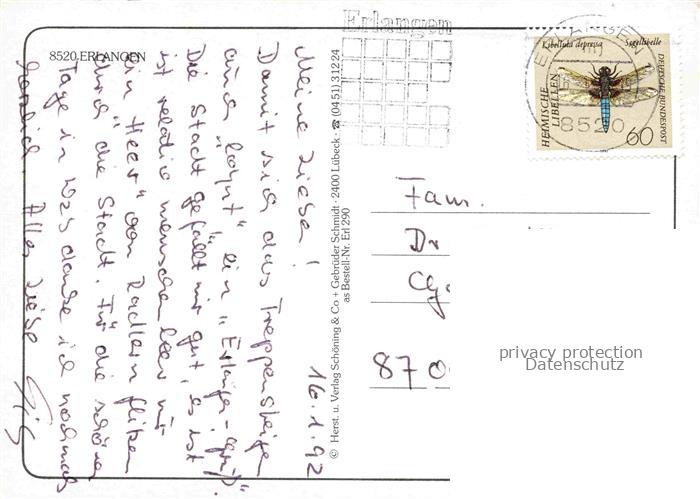 8520 ERLANGEN
16.1.92
Meine Lieben!
Damit sich das Treppensteigen
auch "lohnt" ein "Erlanger-gruß".
Die Stadt gefällt mir gut, es ist
ist relativ menschenleer nur
ein "Heer" von Radlern flitzen
durch die Stadt. Für die schönen
Tage in danke ich nochmals
herzlich. Alles Liebe
© Herst. u. Verlag Schöning & Co + Gebrüder Schmidt · 2400 Lübeck · ☎ (04 51) 3 12 24
as Bestell-Nr. Erl 290
Erlangen
ERLANGEN
8520
Libellula depressa Segellibelle
HEIMISCHE
LIBELLEN
DEUTSCHE BUNDESPOST
60
Fam.
Dr
870
privacy protection
Datenschutz